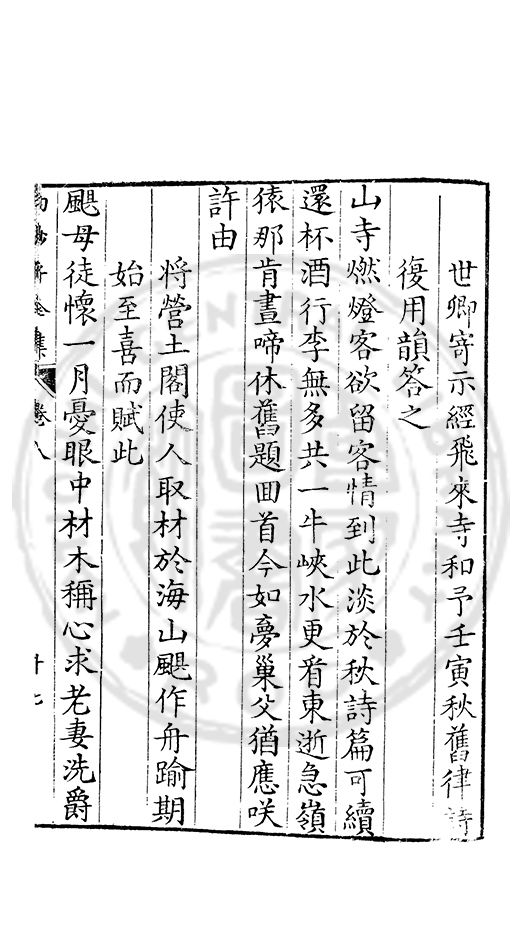 世卿寄示經飛來寺和予壬寅秋舊律詩
復用韻答之
山寺燃燈客欲留客情到此淡於秋詩篇可續
還杯酒行李無多共一牛峽水更看東逝急嶺
猿那肯晝啼休舊題囬首今如夢巢父猶應咲
許由
將營土閣使人取材於海山颶作舟踰期
始至喜而賦此
颶母徒懷一月憂眼中材木稱心求老妻洗爵
集 卷八 十七